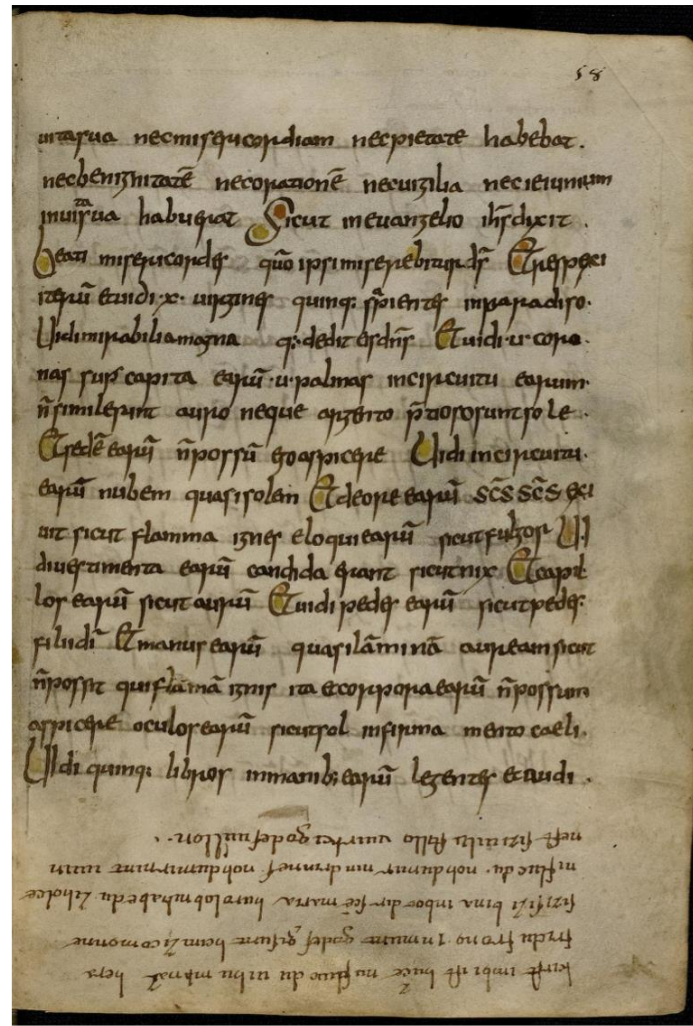 58
uita sua nec misericordiam nec pietate habebat.
nec benignitatē nec orationē nec uigilia nec ieiunium
in uitasua habuerat Sicut in euangelio ihs dixit.
Beati misericordes quō ipsi miserebitur ds Et respexi
iterū et uidi ·x· uirgines quinq; sapientes in paradiso.
Uidi mirabilia magna q; dedit eis dns Et uidi ·u· coro
nas sup capita earū ·u· palmas in circuitu earum.
n̄ similes sunt auro neque argento p̄tiosos sunt sole.
Et sedē earū n̄ possū ego aspicere Uidi in circuitu.
earū nubem quasi solem Et de ore earū scs scs exi
uit sicut flamma ignes eloqui earū sicut fulgor Ui
di uestimenta earū candida erant sicut nix Et capil
los earū sicut aurū Et uidi pedes earū sicut pedes.
filii di Et manus earū quasi lāminā auream sicut
n̄ possit qui flāmā ignis ita et corpora earū n̄ possum
aspicere oculos earū sicut sol in firma mento caeli.
Uidi quinq; libros in manib; earū legentes et audi.
kirst imbi ist hucze nu fluc du uihu minaz hera
fridu frono in munt godes gisunt heim zi comonne
sizi sizi bina inbot dir sce maria hurolob nihabe du zi holce
ni fluc du noh du mir nindrinnes noh du mir nint uuin
nest sizi uilu stillo uuirki godes uuillon.